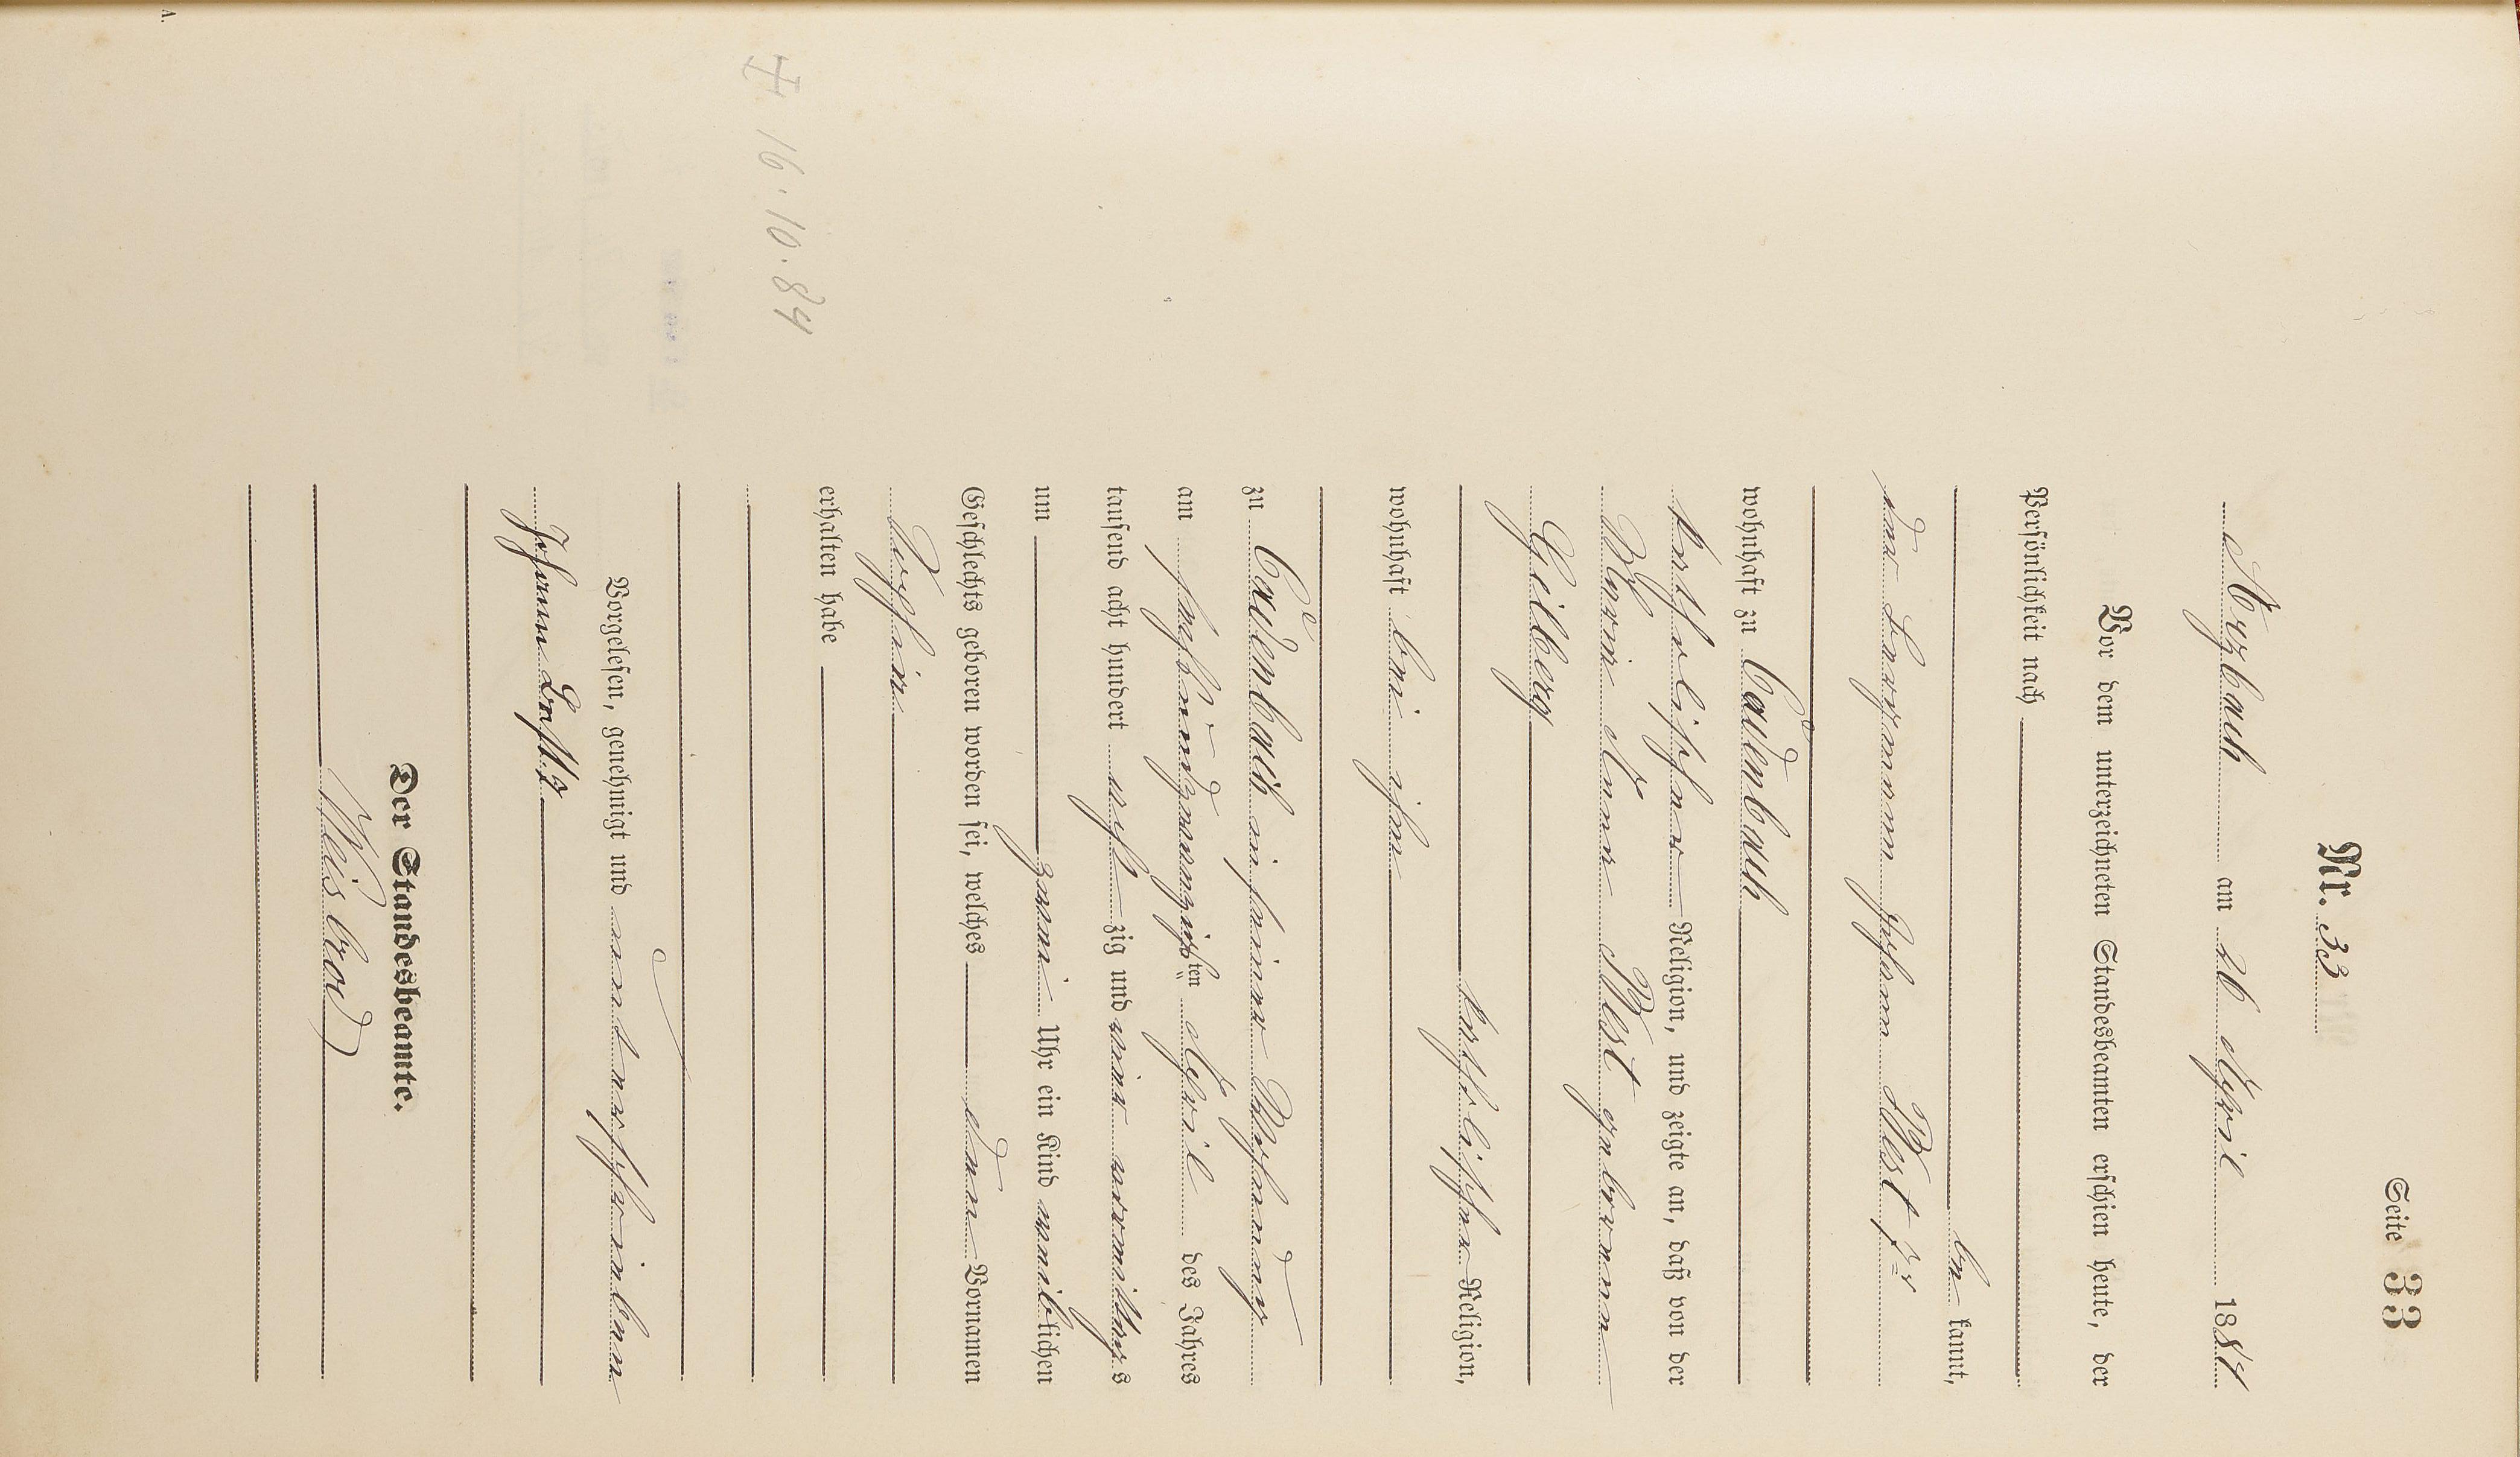 Seite 33
Nr. 33
Atzbach am 26 April 1884
Vor dem unterzeichneten Standesbeamten erschien heute, der
Persönlichkeit nach
be kannt,
der Bergmann Johann Best
wohnhaft zu Cadenbach
katholischer Religion, und zeigte an, daß von der
Maria Anna Best geborene
Gilberg
katholischer Religion,
wohnhaft bei ihm
zu Cadenbach in seiner Wohnung
am sechsundzwanzigsten April des Jahres
tausend acht hundert acht zig und vier vormittags
um zwei Uhr ein Kind weiblichen
Geschlechts geboren worden sei, welches den Vornamen
Sophie
erhalten habe
Vorgelesen, genehmigt und unterschrieben
Johann Best
Der Standesbeamte.
Weisbrod
+ 16.10.84
A.